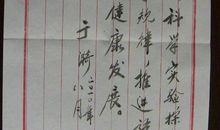 科学实验探
规律，推进
健康发展。
于漪
二〇一〇年
八月